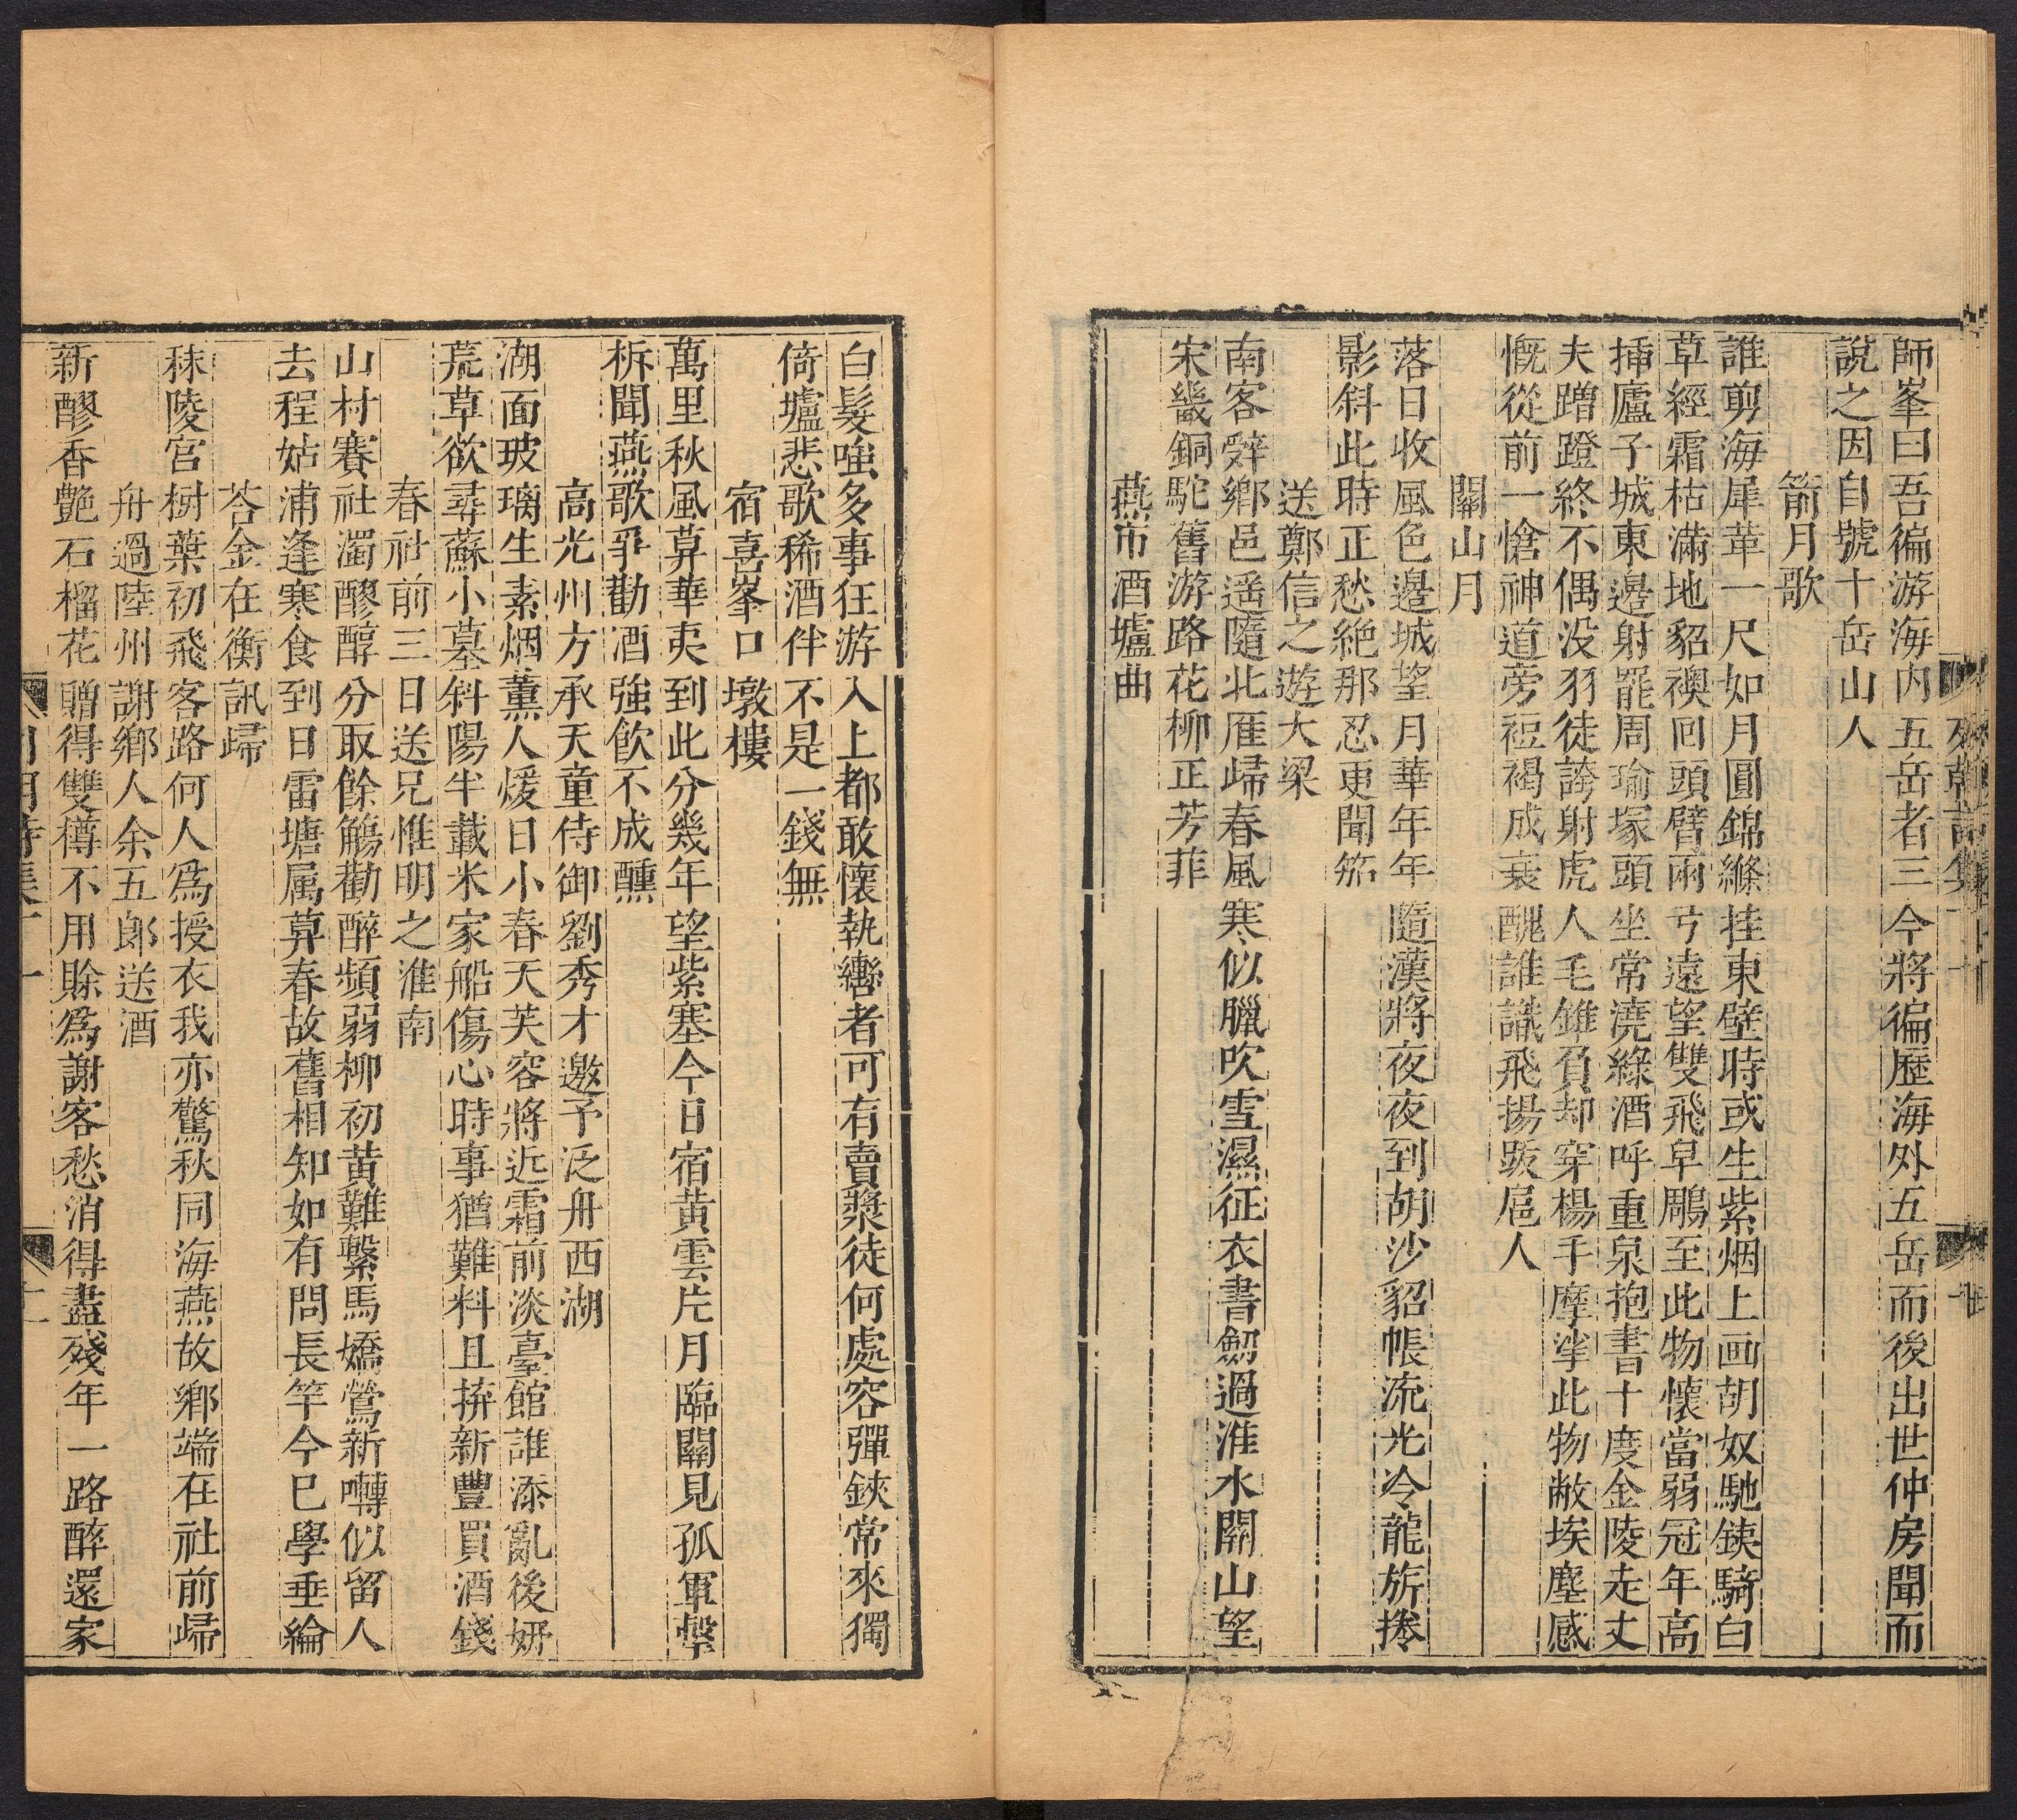 師峯曰吾徧游海内五岳者三今將徧歷海外五岳而後出世仲房聞而
説之因自號十岳山人
箭月歌
誰剪海犀革一尺如月圓錦縧挂東壁時或生紫烟上画胡奴馳鉄騎白
草經霜枯滿地貂襖回頭臂兩弓遠望雙飛早鵰至此物懷當弱冠年高
揷廬子城東邊射罷周瑜塚頭坐常澆綠酒呼重泉抱書十度金陵走丈
夫蹭蹬終不偶没羽徒誇射虎人毛錐負却穿楊手摩挲此物敝埃塵感
慨從前一愴神道旁裋褐成衰醜誰識飛揚跋扈人
關山月
落日收風色邊城望月華年年隨漢將夜夜到胡沙貂帳流光冷龍旂捲
影斜此時正愁絶那忍更聞笳
送鄭信之遊大梁
南客辤鄉邑遥隨北鴈歸春風寒似臘吹雪濕征衣書劒過淮水關山望
宋畿銅駝舊游路花柳正芳菲
燕市酒壚曲
白髮嗤多事狂游入上都敢懷執轡者可有賣漿徒何處容彈鋏常來獨
倚壚悲歌稀酒伴不是一錢無
宿喜峯口墩樓
萬里秋風茻華夷到此分幾年望紫塞今日宿黃雲片月臨關見孤軍擊
柝聞燕歌爭勸酒強飲不成醺
高光州方承天童侍御劉秀才邀予泛舟西湖
湖面玻璃生素烟薫人煖日小春天芙容將近霜前淡臺館誰添亂後妍
荒草欲尋蘇小墓斜陽半載米家船傷心時事猶難料且拚新豐買酒錢
春社前三日送兄惟明之淮南
山村賽社濁醪醇分取餘觴勸醉頻弱柳初黄難繫馬嬌鶯新囀似留人
去程姑浦逢寒食到日雷塘属茻春故舊相知如有問長竿今已學垂綸
荅金在衡訊歸
秣陵宫樹葉初飛客路何人爲授衣我亦驚秋同海燕故鄉端在社前歸
舟過陸州謝鄉人余五郎送酒
新醪香艷石榴花贈得雙樽不用賒爲謝客愁消得盡殘年一路醉還家